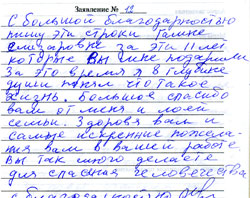 Заявление № 12
С большой благодарностью
пишу эти строки Галине
за эти 11 лет
которые Вы мне подарили
За это время я в глубине
души понял что такое
жизнь. Большое спасибо
вам от меня и моей
семьи. Здоровя вам и
самые искренние пожела-
ния вам в вашей работе
Вы так много делаете
для спасения человечества